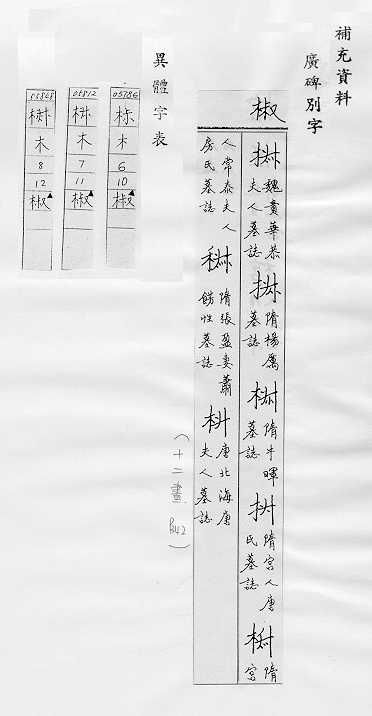 補充資料
廣碑別字
椒
魏貴華恭夫人墓誌
隋楊厲墓誌
隋牛暉墓誌
隋宮人唐氏墓誌
隋宮
人常泰夫人房氏墓誌
隋張盈妻蕭餝性墓誌
唐北海唐夫人墓誌
(十二畫 B42)
異體字表
05786
木
6
10
椒
05812
木
7
11
椒
木
8
12
椒